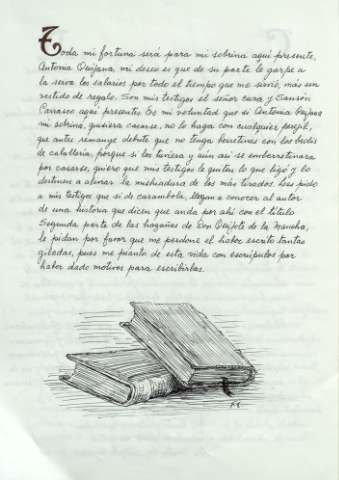 Toda mi fortuna será para mi sobrina aquí presente,
Antonia Quijana, mi deseo es que de su parte le garpe a
la serva los salarios por todo el tiempo que me sirvió, más un
vestido de regalo. Son mis testigos el señor cura y Sansón
Carrasco aquí presentes. Es mi voluntad que si Antonia Quijana
mi sobrina, quisiera casarse, no lo haga con cualquier perejil,
que antes remanye debute que no tenga berretines con los
de caballería, porque si los tuviera y aún así se emberretinara
por casarse, quiero que mis testigos le quiten lo que ligó y lo
destinen a aliviar la mishiadura de los más tirados. Les pido
a mis testigos que si de carambola, llegan a conocer al autor
de una historia que dicen que anda por ahí con el título
Segunda parte de las hazañas de Don Quijote de la Mancha,
le pidan por favor que me perdone el haber escrito tantas
giladas, pues me pianto de esta vida con escrúpulos por
haber dado motivos para escribirlas.